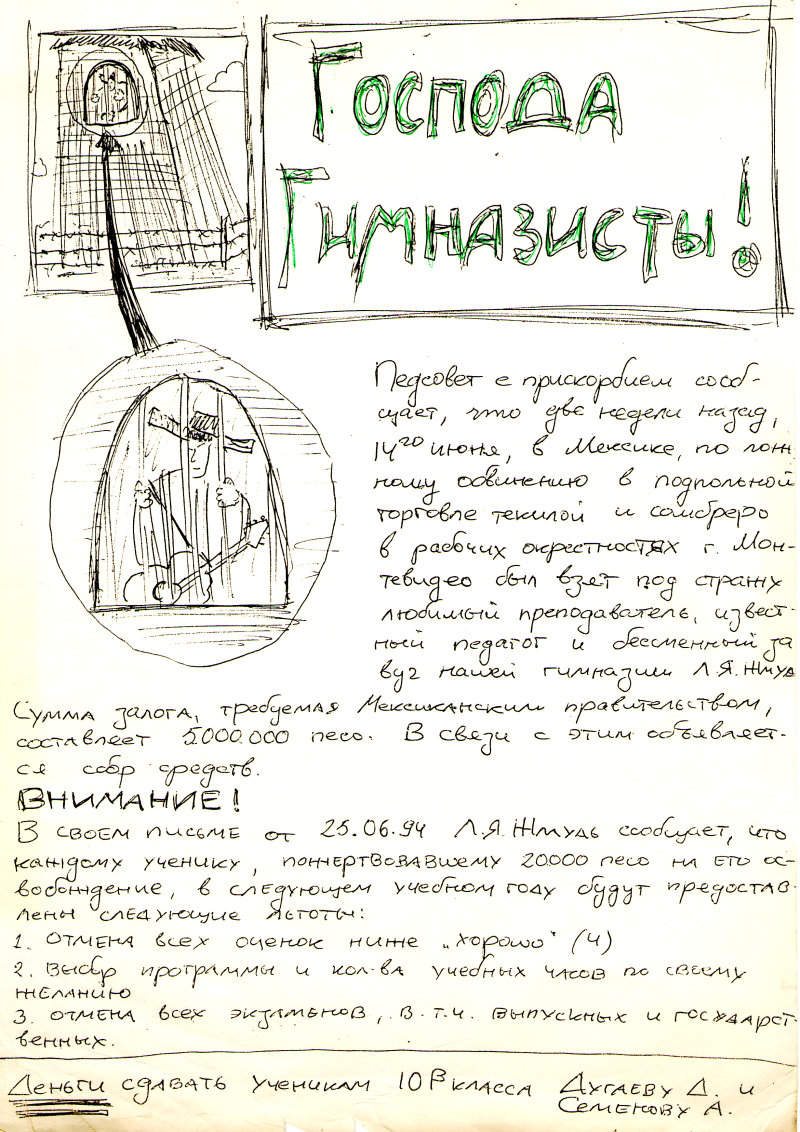 Господа
Гимназисты!
Педсовет с прискорбием сооб-
щает, что две недели назад,
14го июня, в Мексике, по лож-
ному обвинению в подпольной
торговле текилой и сомбреро
в рабочих окрестностях г. Мон-
тевидео был взят под стражу
любимый преподаватель, извест-
ный педагог и бессменный за
вуч нашей гимназии Л.Я. Жмудь
Сумма залога, требуемая Мексиканским правительством,
составляет 5000.000 песо. В связи с этим объявляет-
ся сбор средств.
ВНИМАНИЕ!
В своем письме от 25.06.94 Л.Я. Жмудь сообщает, что
каждому ученику, пожертвовавшему 20000 песо на его ос-
вобождение, в следующем учебном году будут предостав-
лены следующие льготы:
1. Отмена всех оценок ниже „хорошо" (4)
2. Выбор программы и кол-ва учебных часов по своему
желанию
3. Отмена всех экзаменов, в т.ч. выпускных и государст-
венных.
Деньги сдавать ученикам 10В класса Дугаеву Д. и
Семенову А.